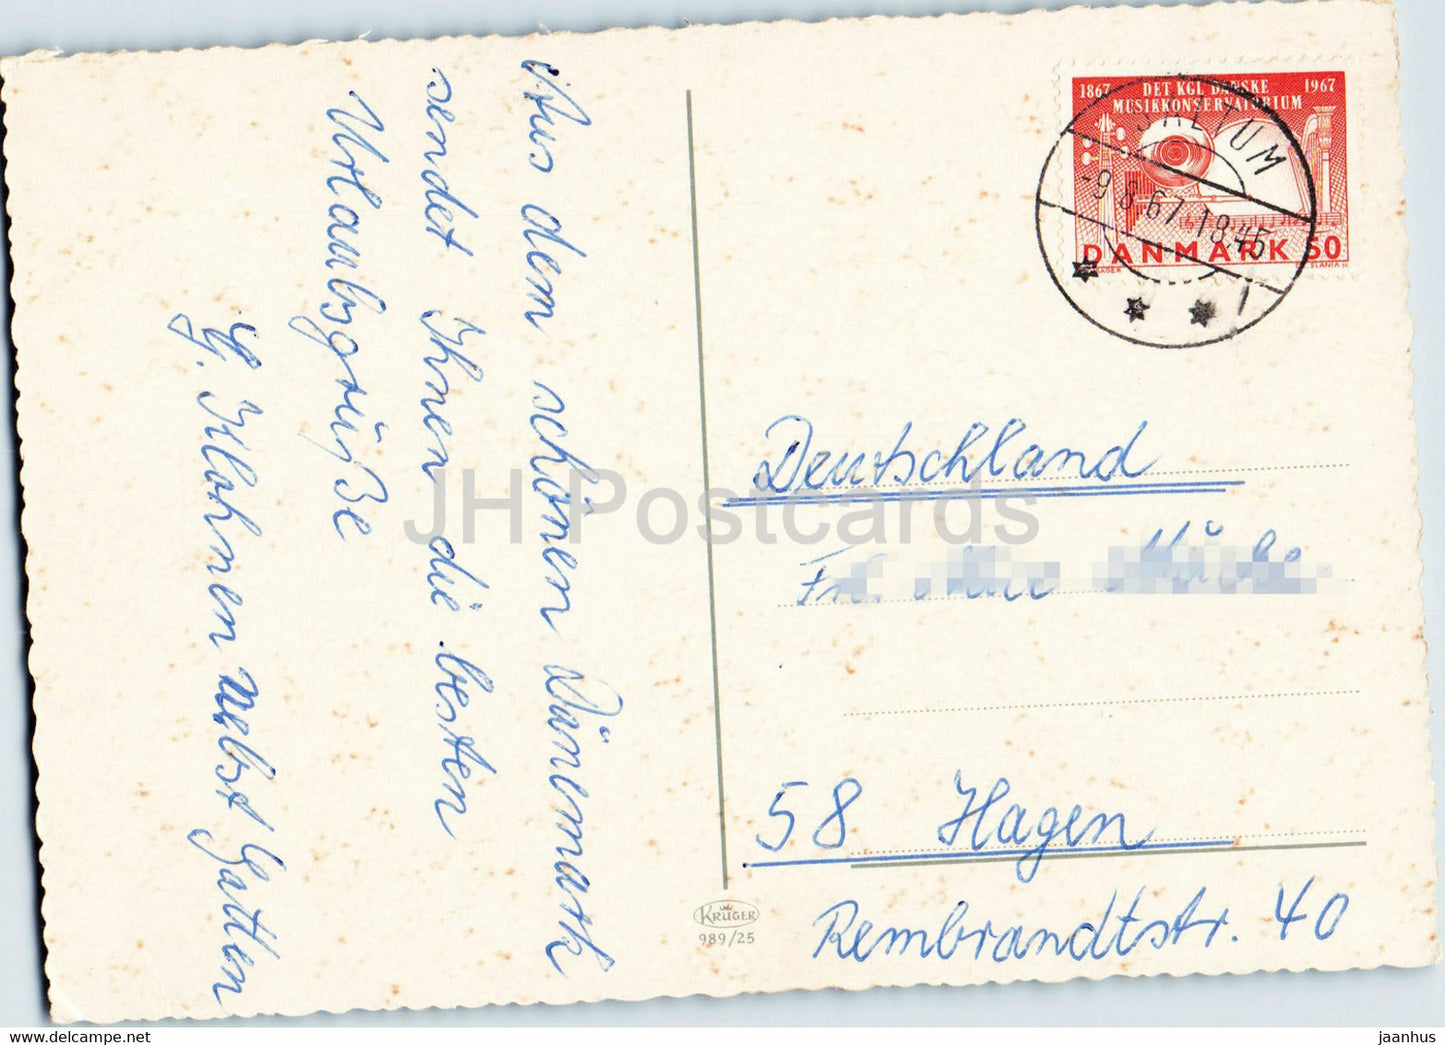 Aus dem schönen Dänemark
sendet Ihnen die besten
Urlaubsgrüße
nebst Gatten
1867 DET KGL DANSKE 1967
MUSIKKONSERVATORIUM
DANMARK 50
SALTUM
-9.8.67.18.45
Deutschland
58 Hagen
Rembrandtstr. 40
KRÜGER
989/25
JH Postcards
www.delcampe.net
jaanhus